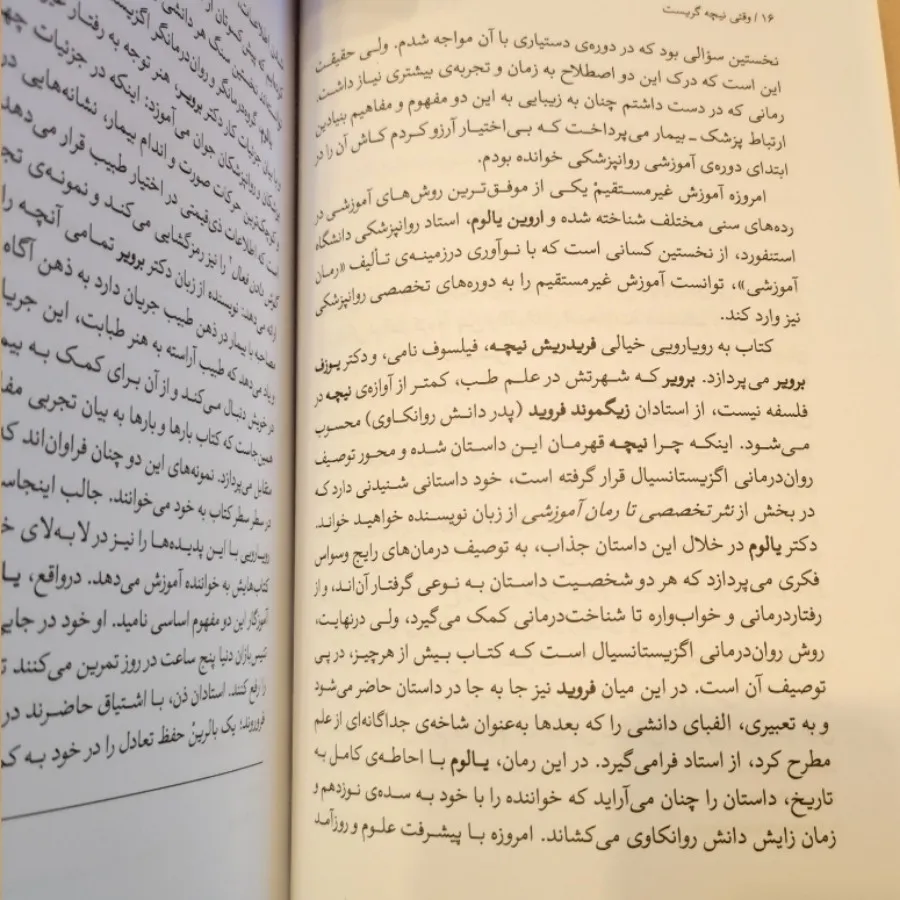 ۱۶ / وقتی نیچه گریست
نخستین سؤالی بود که در دوره‌ی دستیاری با آن مواجه شدم. ولی حقیقت
این است که درک این دو اصطلاح به زمان و تجربه‌ی بیشتری نیاز داشت.
رمانی که در دست داشتم چنان به زیبایی به این دو مفهوم و مفاهیم بنیادین
ارتباط پزشک ـ بیمار می‌پرداخت که بی‌اختیار آرزو کردم کاش آن را در
ابتدای دوره‌ی آموزشی روانپزشکی خوانده بودم.
امروزه آموزش غیرمستقیمْ یکی از موفق‌ترین روش‌های آموزشی در
رده‌های سنی مختلف شناخته شده و اروین یالوم، استاد روانپزشکی دانشگاه
استنفورد، از نخستین کسانی است که با نوآوری درزمینه‌ی تألیف «رمان
آموزشی»، توانست آموزش غیرمستقیم را به دوره‌های تخصصی روانپزشکی
نیز وارد کند.
کتاب به رویارویی خیالی فریدریش نیچه، فیلسوف نامی، و دکتر یوزف
برویر می‌پردازد. برویر که شهرتش در علم طب، کمتر از آوازه‌ی نیچه در
فلسفه نیست، از استادان زیگموند فروید (پدر دانش روانکاوی) محسوب
می‌شود. اینکه چرا نیچه قهرمان این داستان شده و محور توصیف
روان‌درمانی اگزیستانسیال قرار گرفته است، خود داستانی شنیدنی دارد که
در بخش از نثر تخصصی تا رمان آموزشی از زبان نویسنده خواهید خواند.
دکتر یالوم در خلال این داستان جذاب، به توصیف درمان‌های رایج وسواس
فکری می‌پردازد که هر دو شخصیت داستان به نوعی گرفتار آن‌اند، و از
رفتاردرمانی و خواب‌واره تا شناخت‌درمانی کمک می‌گیرد، ولی درنهایت،
روش روان‌درمانی اگزیستانسیال است که کتاب بیش از هرچیز، در پی
توصیف آن است. در این میان فروید نیز جا به جا در داستان حاضر می‌شود
و به تعبیری، الفبای دانشی را که بعدها به‌عنوان شاخه‌ی جداگانه‌ای از علم
مطرح کرد، از استاد فرامی‌گیرد. در این رمان، یالوم با احاطه‌ی کامل به
تاریخ، داستان را چنان می‌آراید که خواننده را با خود به سده‌ی نوزدهم و
زمان زایش دانش روانکاوی می‌کشاند. امروزه با پیشرفت علوم و روزآمد
کار دکتر برویر، هنر توجه به رفتار
جوان می‌آموزد: اینکه در جزئیات
حرکات صورت و اندام بیمار، نشانه‌هایی
است که اطلاعات ذی‌قیمتی در اختیار طبیب قرار می‌دهد
را نیز رمزگشایی می‌کند و نمونه‌ی
نویسنده از زبان دکتر برویر تمامی آنچه را
مصاحبه با بیمار در ذهن طبیب جریان دارد به ذهن
می‌دهد که طبیب آراسته به هنر طبابت، این
در خویش دنبال می‌کند و از آن برای کمک به
همین جاست که کتاب بارها و بارها به بیان تجربی
مقابل می‌پردازد. نمونه‌های این دو چنان فراوان‌اند که
در سطر سطر کتاب به خود می‌خوانند. جالب اینجاست
رویارویی با این پدیده‌ها را نیز در لابه‌لای
کتاب‌هایش به خواننده آموزش می‌دهد. درواقع،
آموزگار این دو مفهوم اساسی نامید. او خود در جایی
تنیس‌بازان دنیا پنج ساعت در روز تمرین می‌کنند
را رفع کنند. استادان ذن، با اشتیاق حاضرند در
فروروند؛ یک بالرینْ حفظ تعادل را در خود به